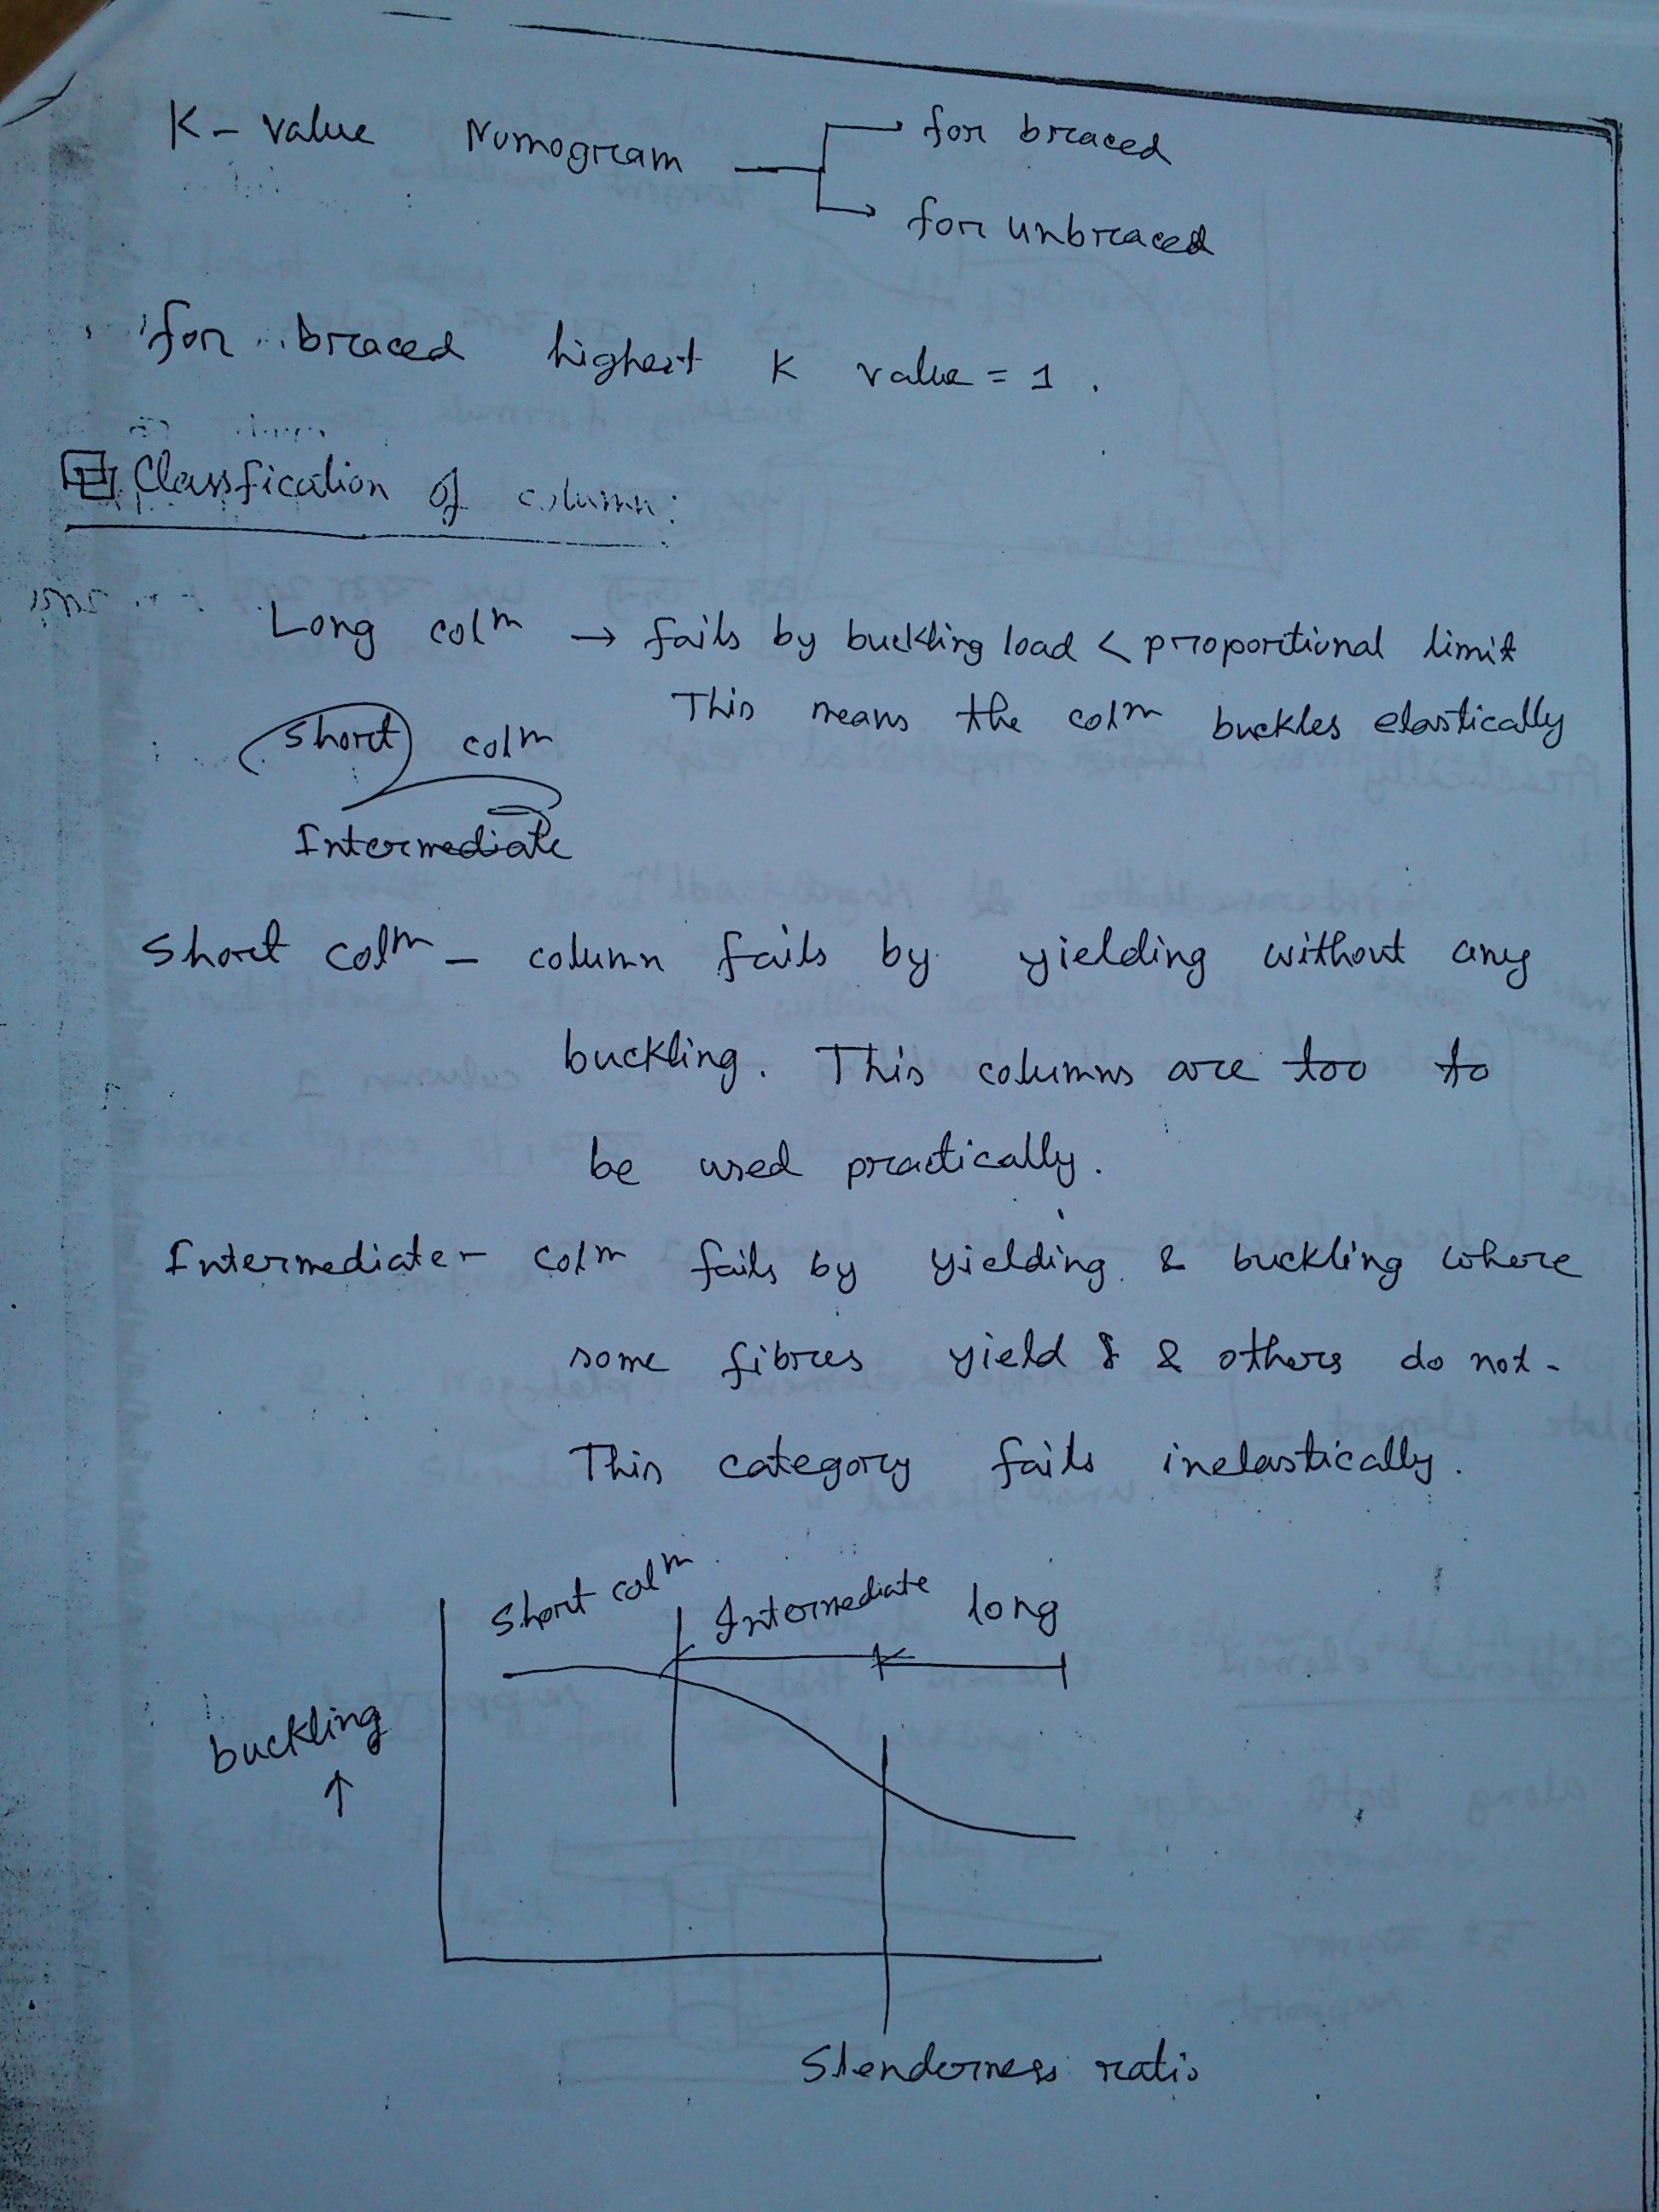 K - value Nomogram
for braced
for unbraced
for braced highest K value = 1 .
Classfication of column:
Long colm → fails by buckling load < proportional limit
This means the colm buckles elastically
Short colm
Intermediate
Short colm - column fails by yielding without any
buckling. This columns are too to
be used practically.
Intermediate - colm fails by yielding & buckling where
some fibres yield & & others do not -
This category fails inelastically.
Short colm Intermediate long
buckling
↑
Slenderness ratio